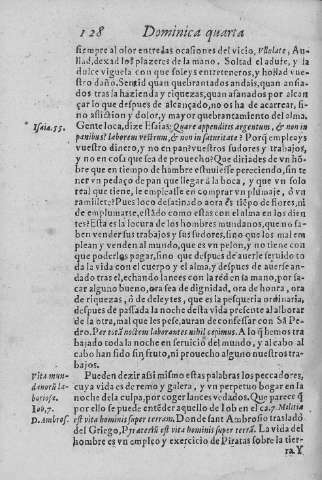 128 Dominica quarta
siempre al olor entre las ocasiones del vicio, Vllolate, Au-
llad, dexad los plazeres de la mano. Soltad el adufe, y la
dulce viguela con que soleys entreteneros, y hollad vue-
stro daño. Sentid quan quebrantados andais, quan ansia-
dos tras la hazienda y riquezas, quan afanados por alcan
çar lo que despues de alcançado, no os ha de acarrear, si-
no afliction y dolor, y mayor quebrantamiento del alma.
Isaia. 55. Gente loca, dize Esaias: Quare appenditis argentum, & non in
panibus? laborem vestrum, & non in saturitate? Porq̃ empleays
vuestro dinero, y no en pan? vuestros sudores y trabajos,
y no en cosa que sea de prouecho? Que diriades de vn hõ-
bre que en tiempo de hambre estuuiesse pereciendo, sin te
ner vn pedaço de pan que llegar à la boca, y que vn solo
real que tiene, le empleasse en comprar vn plumaje, ò vn
ramillete? Pues loco desatinado aora es tiẽpo de flores, ni
de emplumarte, estãdo como estas con el alma en los dien
tes? Esta es la locura de los hombres mundanos, que no sa-
ben vender sus trabajos y sus sudores, sino que los mal em
plean y venden al mundo, que es vn pelon, y no tiene con
que poderlos pagar, sino que despues de auerle seruido to
da la vida con el cuerpo y el alma, y despues de auerse an-
dado tras el, echando lances con la red en la mano, por sa-
car alguno bueno, ora sea de dignidad, ora de honra, ora
de riquezas, ò de deleytes, que es la pesqueria ordinaria,
despues de passada la noche desta vida presente al alborar
de la otra, mal que les pese, auran de confessar con Sã Pe-
dro. Per totã noctem laborantes nihil cepimus. A lo q̃ hemos tra
bajado toda la noche en seruicio del mundo, y al cabo al
cabo han sido sin fruto, ni prouecho alguno nuestros tra-
bajos.
Vita mun- Pueden dezir assi mismo estas palabras los peccadores,
danorũ la- cuya vida es de remo y galera, y vn perpetuo bogar en la
boriosa. noche de la culpa, por coger lances vedados. Que parece q̃
Iob, 7. por ello se puede entender aquello de Iob en el ca. 7. Militia
D. Ambros. est vita hominis super terram. Donde sant Ambrosio traslado
del Griego, Pyraterũ est vita hominis super terrã. La vida del
hombre es vn empleo y exercicio de Piratas sobre la tier-
ra. Y